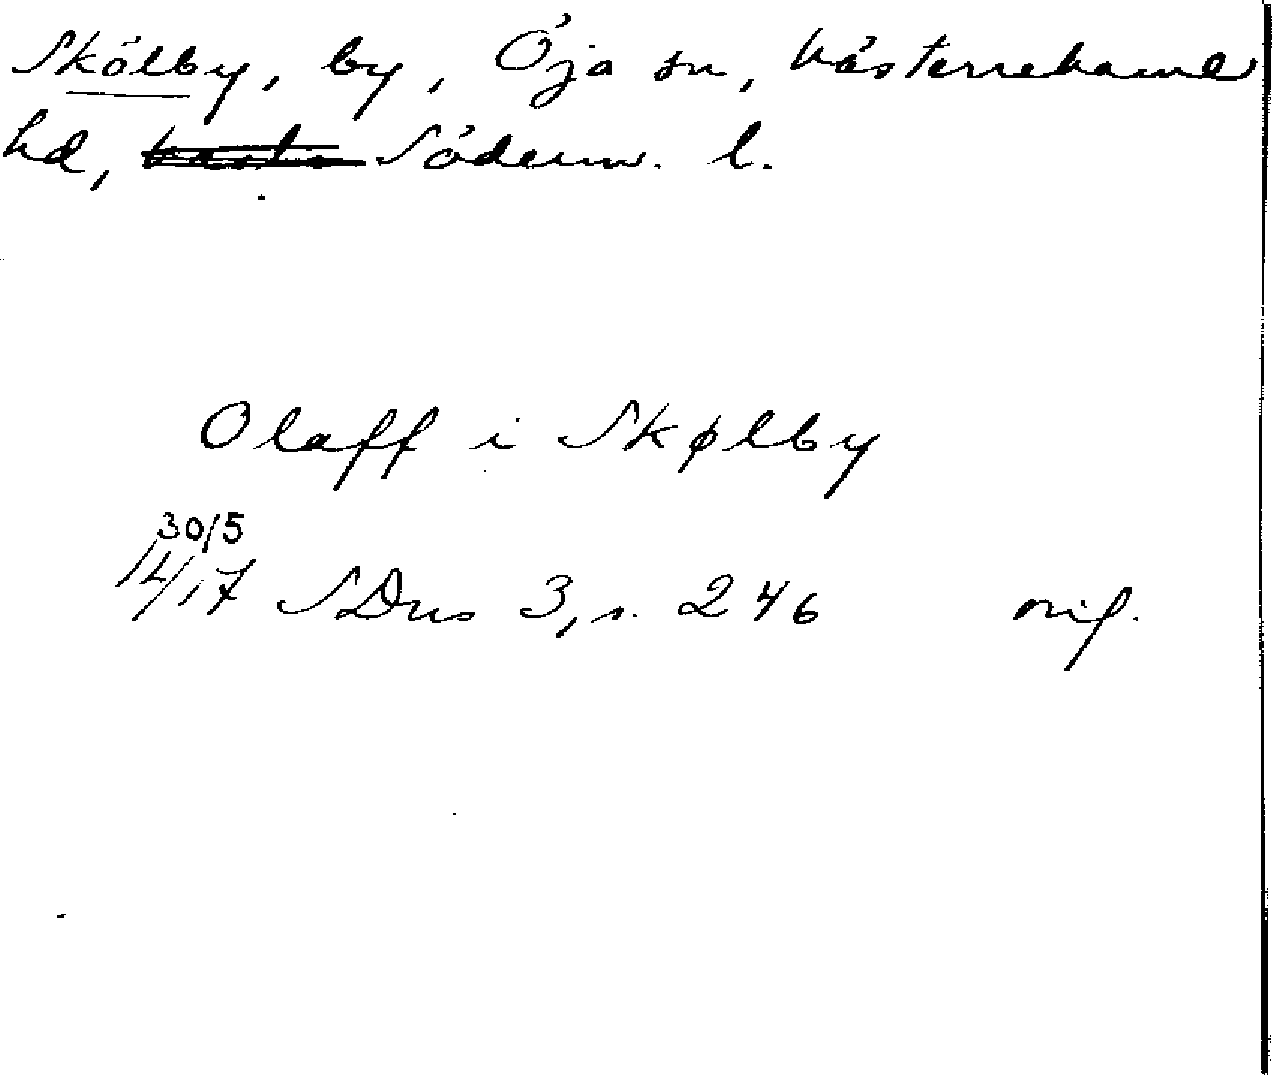 Skölby, by, Öja sn, Västerrekarne
hd, Söderm. l.
Olaff i Skølby
30/5
14/17 SDns 3, s. 246 orig.